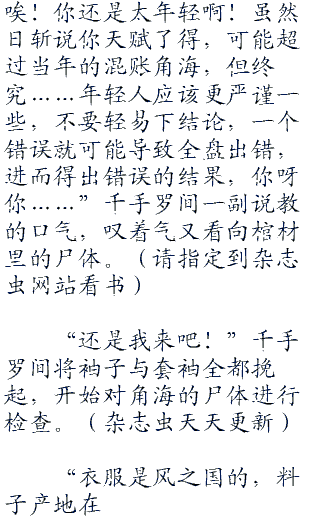 唉！你还是太年轻啊！虽然
日斩说你天赋了得，可能超
过当年的混账角海，但终
究……年轻人应该更严谨一
些，不要轻易下结论，一个
错误就可能导致全盘出错，
进而得出错误的结果，你呀
你……”千手罗间一副说教
的口气，叹着气又看向棺材
里的尸体。（请指定到杂志
虫网站看书）
“还是我来吧！”千手
罗间将袖子与套袖全都挽
起，开始对角海的尸体进行
检查。（杂志虫天天更新）
“衣服是风之国的，料
子产地在